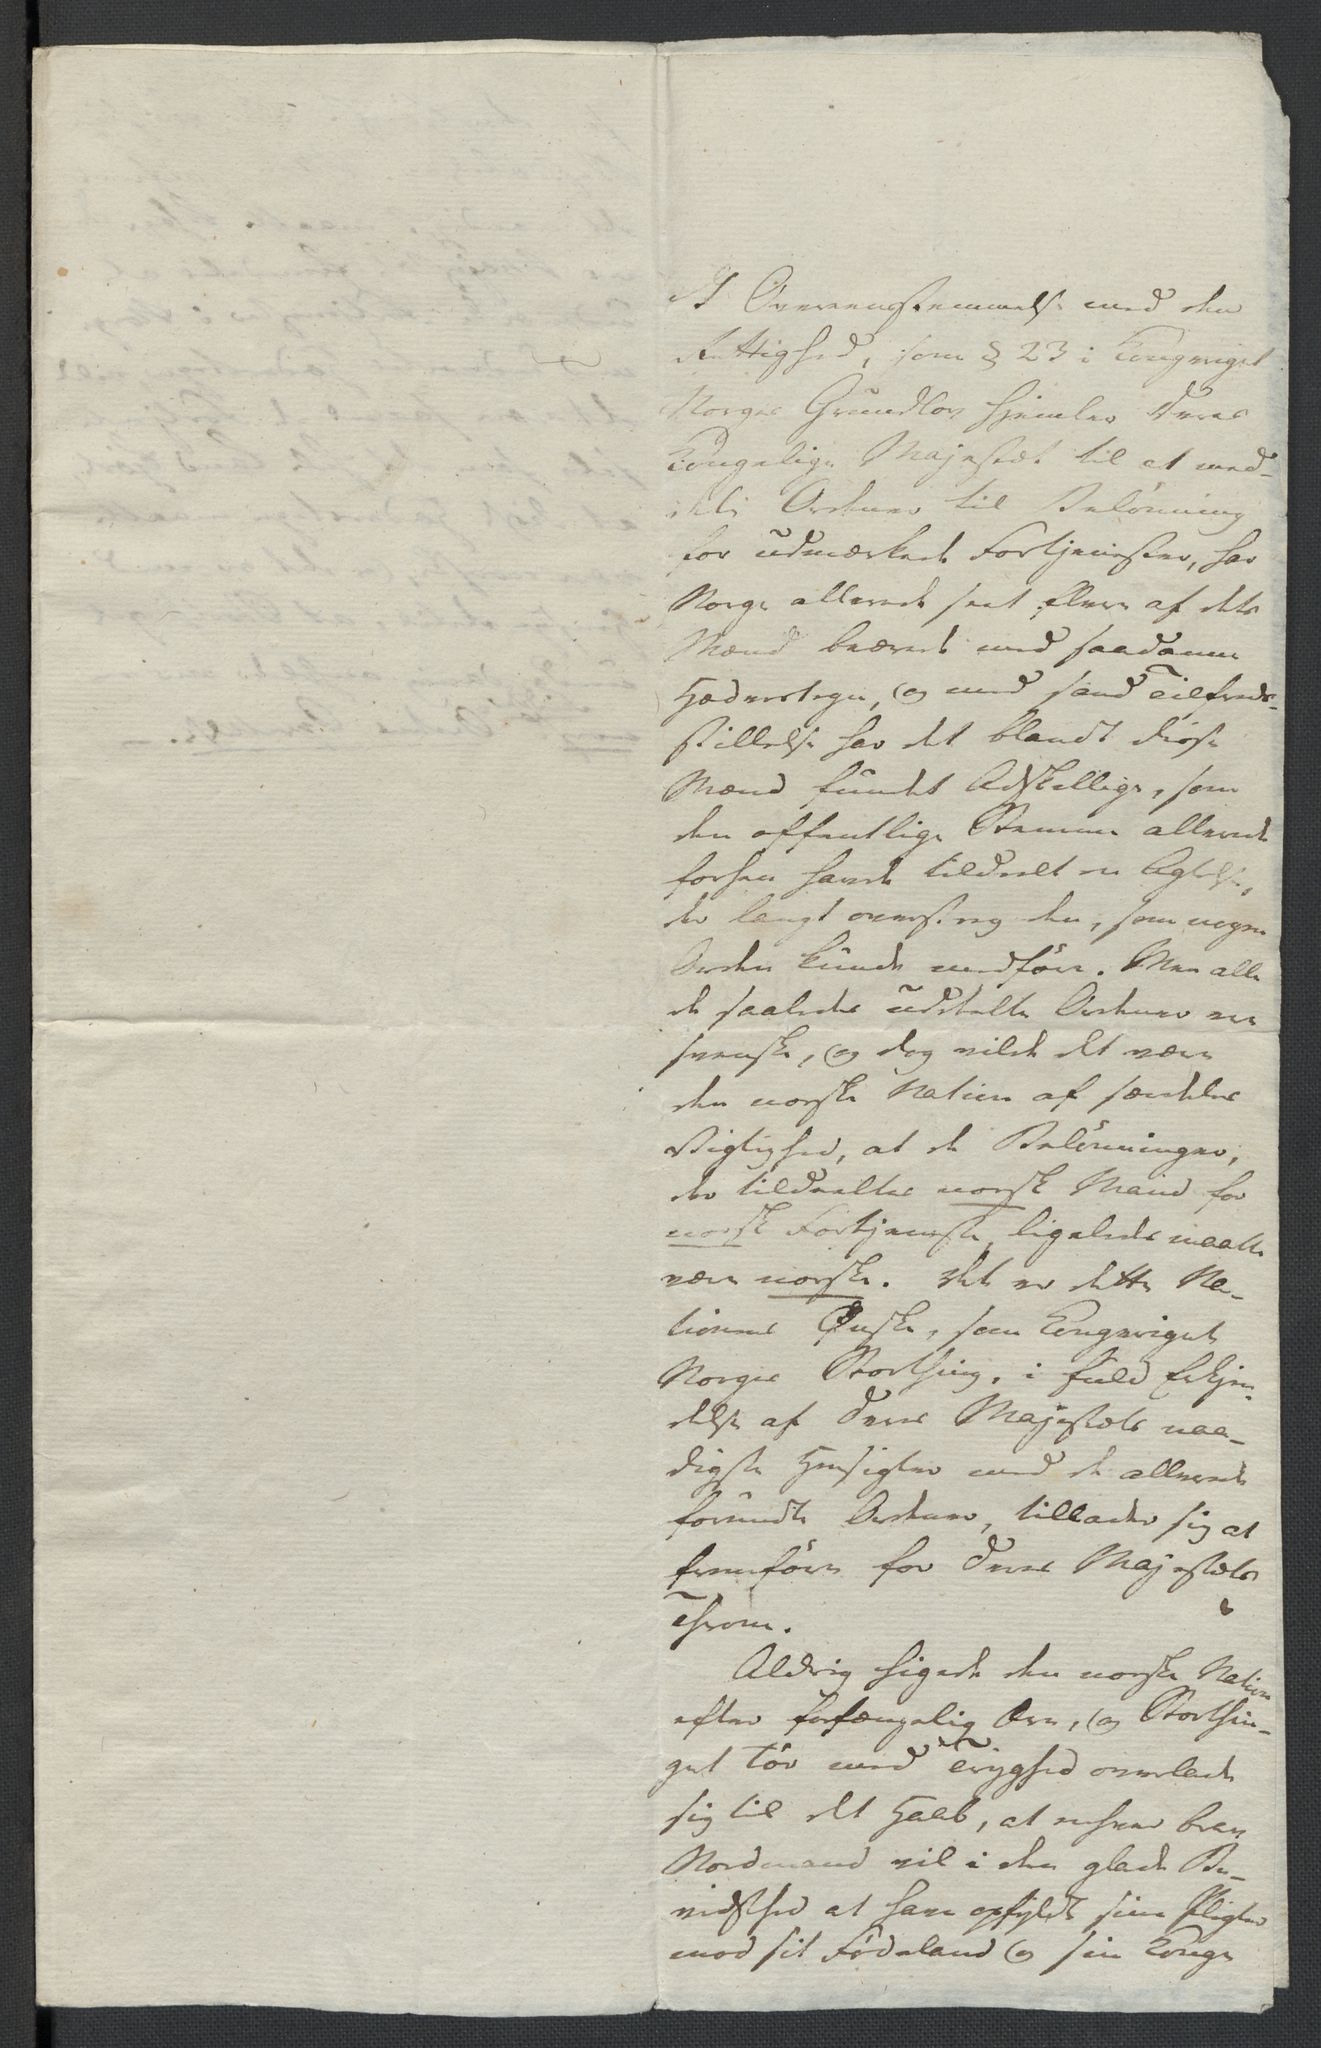 I Overensstemmelse med den
Rettighed, som § 23 i Kongeriget
Norges Grundlov hjemler Deres
Kongelige Majestæt til at med-
dele Ordener til Belönning
for udmærkede Fortjenester, har
Norge allerede seet flere af dets
Mænd beærede med saadanne
Hæderstegn, og med sand Tilfreds-
stillelse har det blandt disse
Mænd fundet Adskillige, som
den offentlige Stemme allerede
forhen havde tildeelt en Agtelse,
der langt oversteg den, som nogen
Orden kunde medföre. Men alle
de saaledes uddeelte Ordener ere
svenske, og dog vilde det være
den norske Nation af særdeles
Vigtighed, at de Belönninger,
der tildeeltes norsk Mand for
norsk Fortjeneste, ligeledes maatte
være norske. Det er dette Na-
tionens Önske, som Kongeriget
Norges Storthing, i fuld Erkjen-
delse af Deres Majestæts naa-
digste Hensigter med de allerede
forundte Ordener, tillader sig at
fremföre for Deres Majestæts
Throne.
Aldrig higede den norske Nation
efter forfængelig Ære, og Storthin-
get tör med Tryghed overlade
sig til det Haab, at enhver brav
Nordmand vil i den glade Be-
vidsthed at have opfyldt sine Pligter
mod sit Fødeland og sin Konge